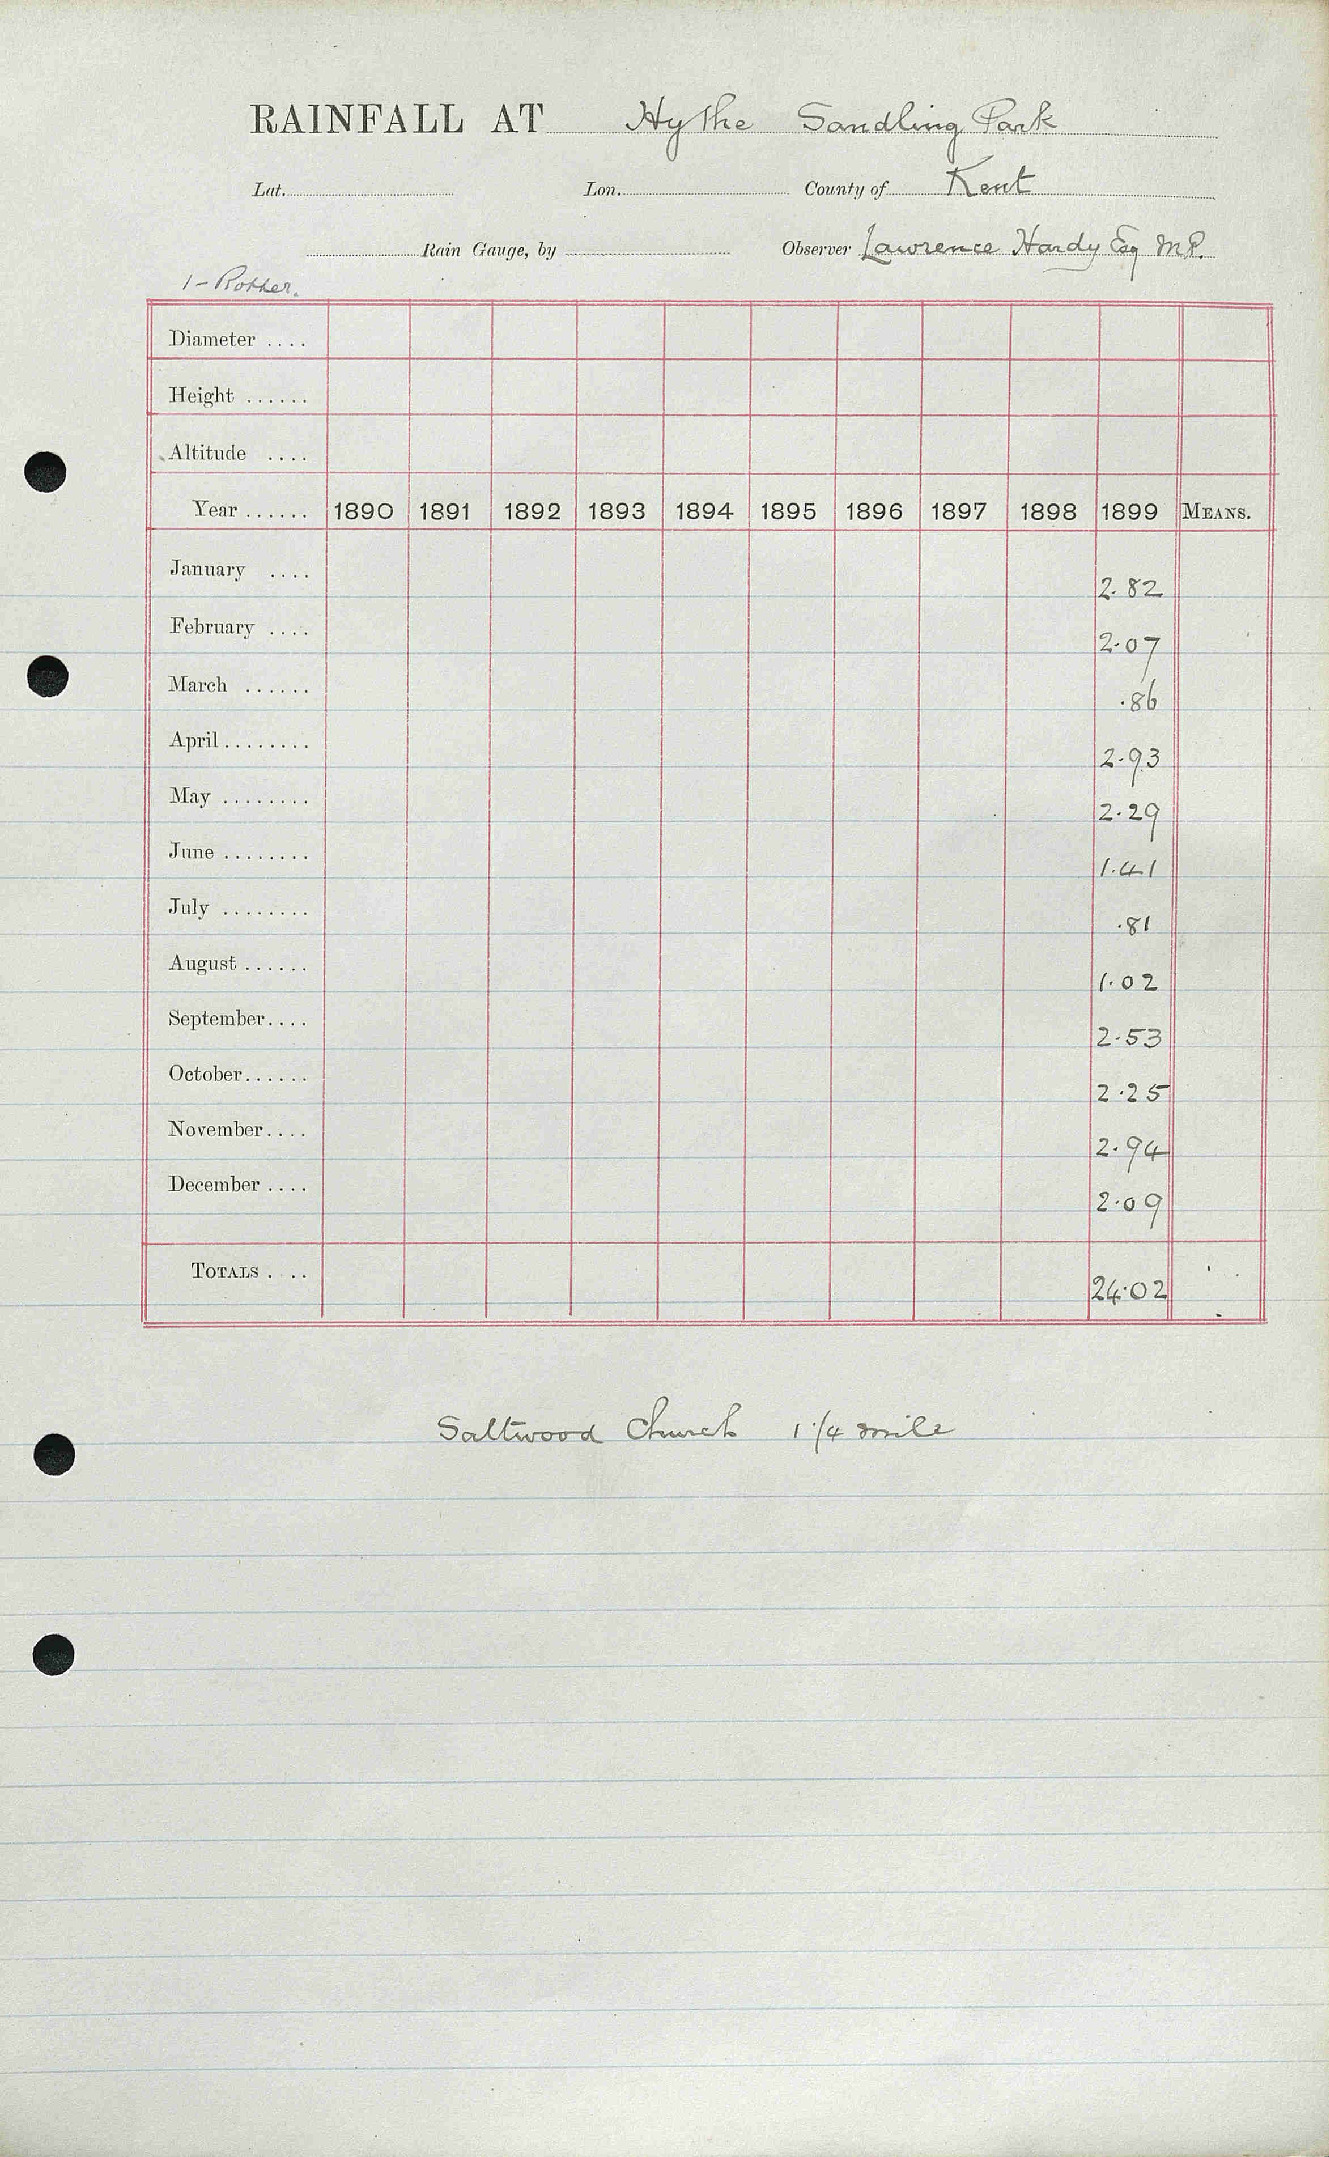 RAINFALL AT Hythe Sandling Park
Lat. Lon. County of Kent
Rain Gauge, by Observer Lawrence Hardy Esq M.P.
1 - Rother.
Diameter ....
Height ......
Altitude ....
Year ...... 1890 1891 1892 1893 1894 1895 1896 1897 1898 1899 MEANS.
January .... 2.82
February .... 2.07
March ...... .86
April ........ 2.93
May ........ 2.29
June ........ 1.41
July ........ .81
August ...... 1.02
September.... 2.53
October...... 2.25
November.... 2.94
December .... 2.09
TOTALS .... 24.02
Saltwood Church 1 1/4 mile